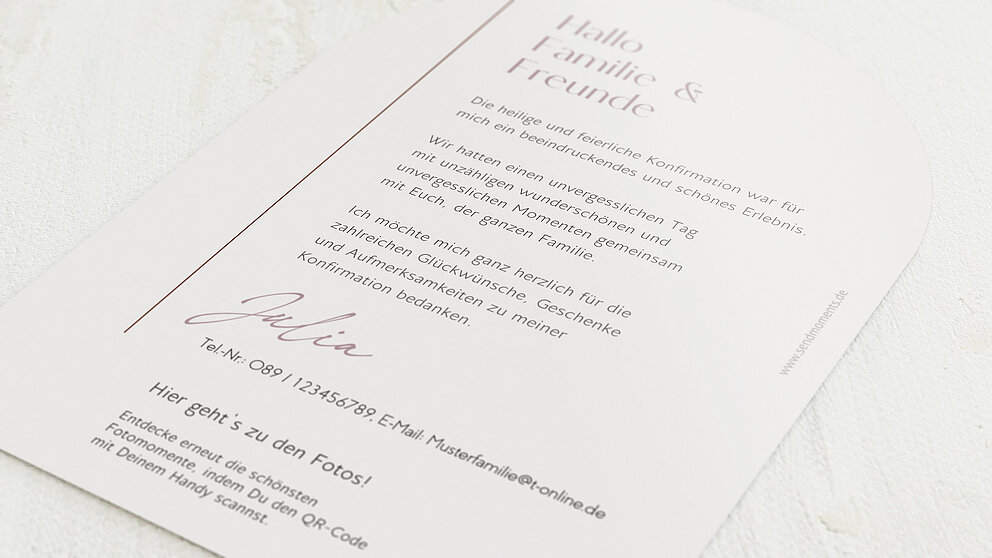 Hallo
Familie &
Freunde
Die heilige und feierliche Konfirmation war für
mich ein beeindruckendes und schönes Erlebnis.
Wir hatten einen unvergesslichen Tag
mit unzähligen wunderschönen und
unvergesslichen Momenten gemeinsam
mit Euch, der ganzen Familie.
Ich möchte mich ganz herzlich für die
zahlreichen Glückwünsche, Geschenke
und Aufmerksamkeiten zu meiner
Konfirmation bedanken.
Julia
Tel.-Nr.: 089 / 123456789, E-Mail: Musterfamilie@t-online.de
Hier geht's zu den Fotos!
Entdecke erneut die schönsten
Fotomomente, indem Du den QR-Code
mit Deinem Handy scannst.
www.sendmoments.de